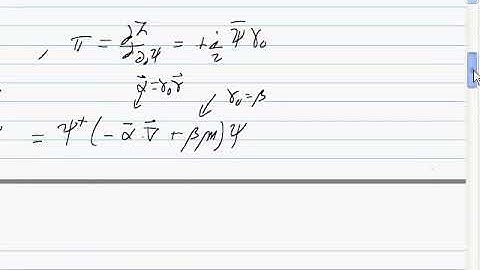 , π = ∂ℒ/∂∂₀ψ = +i/2 ψ̄γ₀
α⃗=γ₀γ⃗
γ₀=β
= ψ⁺(-α⃗·∇⃗ + βm)ψ